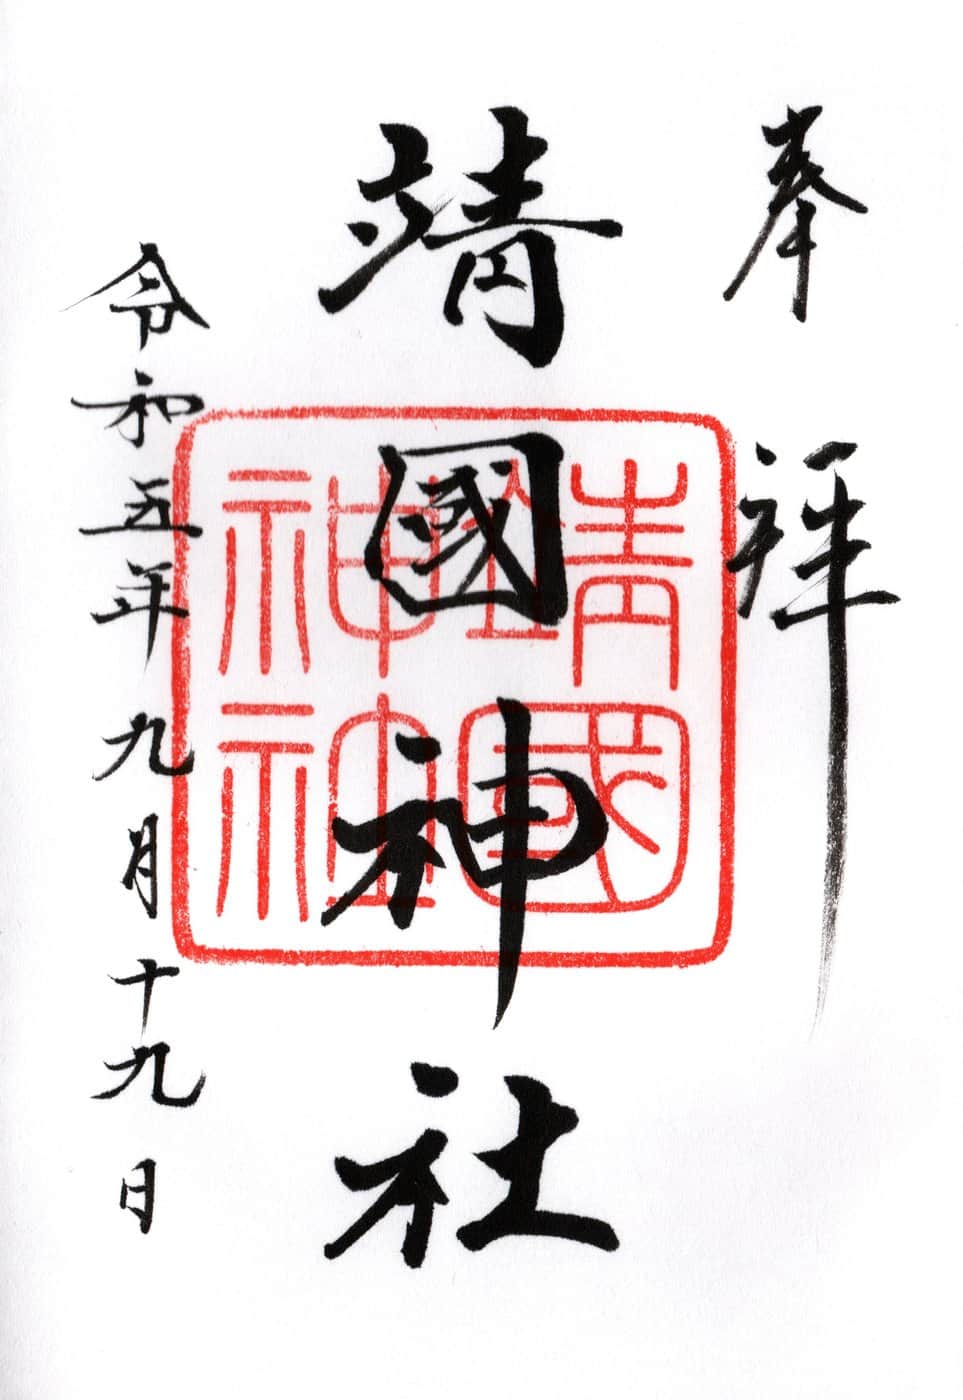 奉拝
靖國神社
靖國神社
令和五年九月十九日